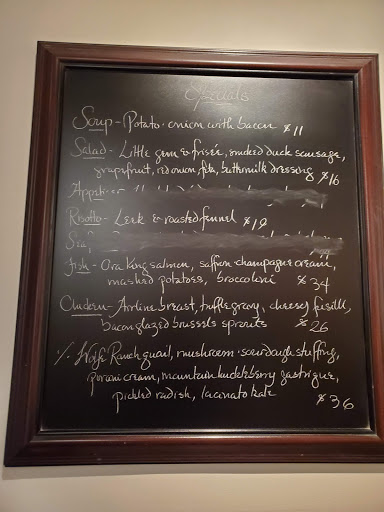 Specials
Soup - Potato - onion with bacon $11
Salad - Little gem & frisée, smoked duck sausage,
grapefruit, red onion, feta, buttermilk dressing $16
Appeti
Risotto - Leek & roasted fennel $19
Sea
Fish - Ora King salmon, saffron-champagne cream,
mashed potatoes, broccolini $34
Chicken - Airline breast, truffle gravy, cheesy fusilli,
bacon glazed brussels sprouts $26
Wolfe Ranch quail, mushroom-sourdough stuffing,
porcini cream, mountain huckleberry gastrique,
pickled radish, lacinato kale $36